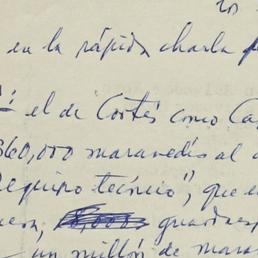 en la rápida charla
el de Cortés como Ca
360,000 maravedís al
equipo técnico", que e
un millón de mara